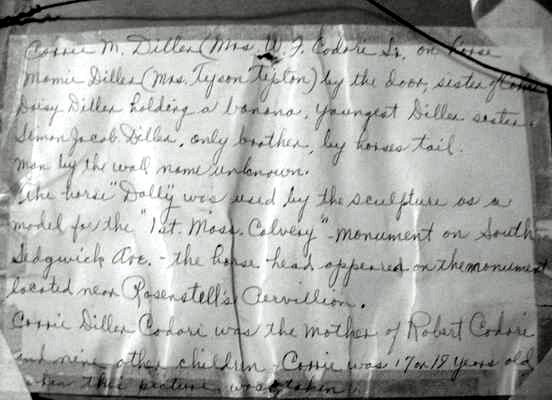 Corrie M. Diller (Mrs. W. F. Codori Sr. on horse
Mamie Diller (Mrs. Tyson Tipton) by the door, sister of
Daisy Diller holding a banana, youngest Diller sister.
Simon Jacob Diller, only brother, by horses tail.
Man by the wall name unknown.
The horse "Dolly" was used by the sculpture as a
model for the "1st. Mass. Calvery" - monument on South
Sedgwick Ave. - the horse head appeared on the monument
located near Rosenstell's
Corrie Diller Codori was the mother of Robert Codori
and nine other children - Corrie was 17 or 18 years old
when this picture was taken.